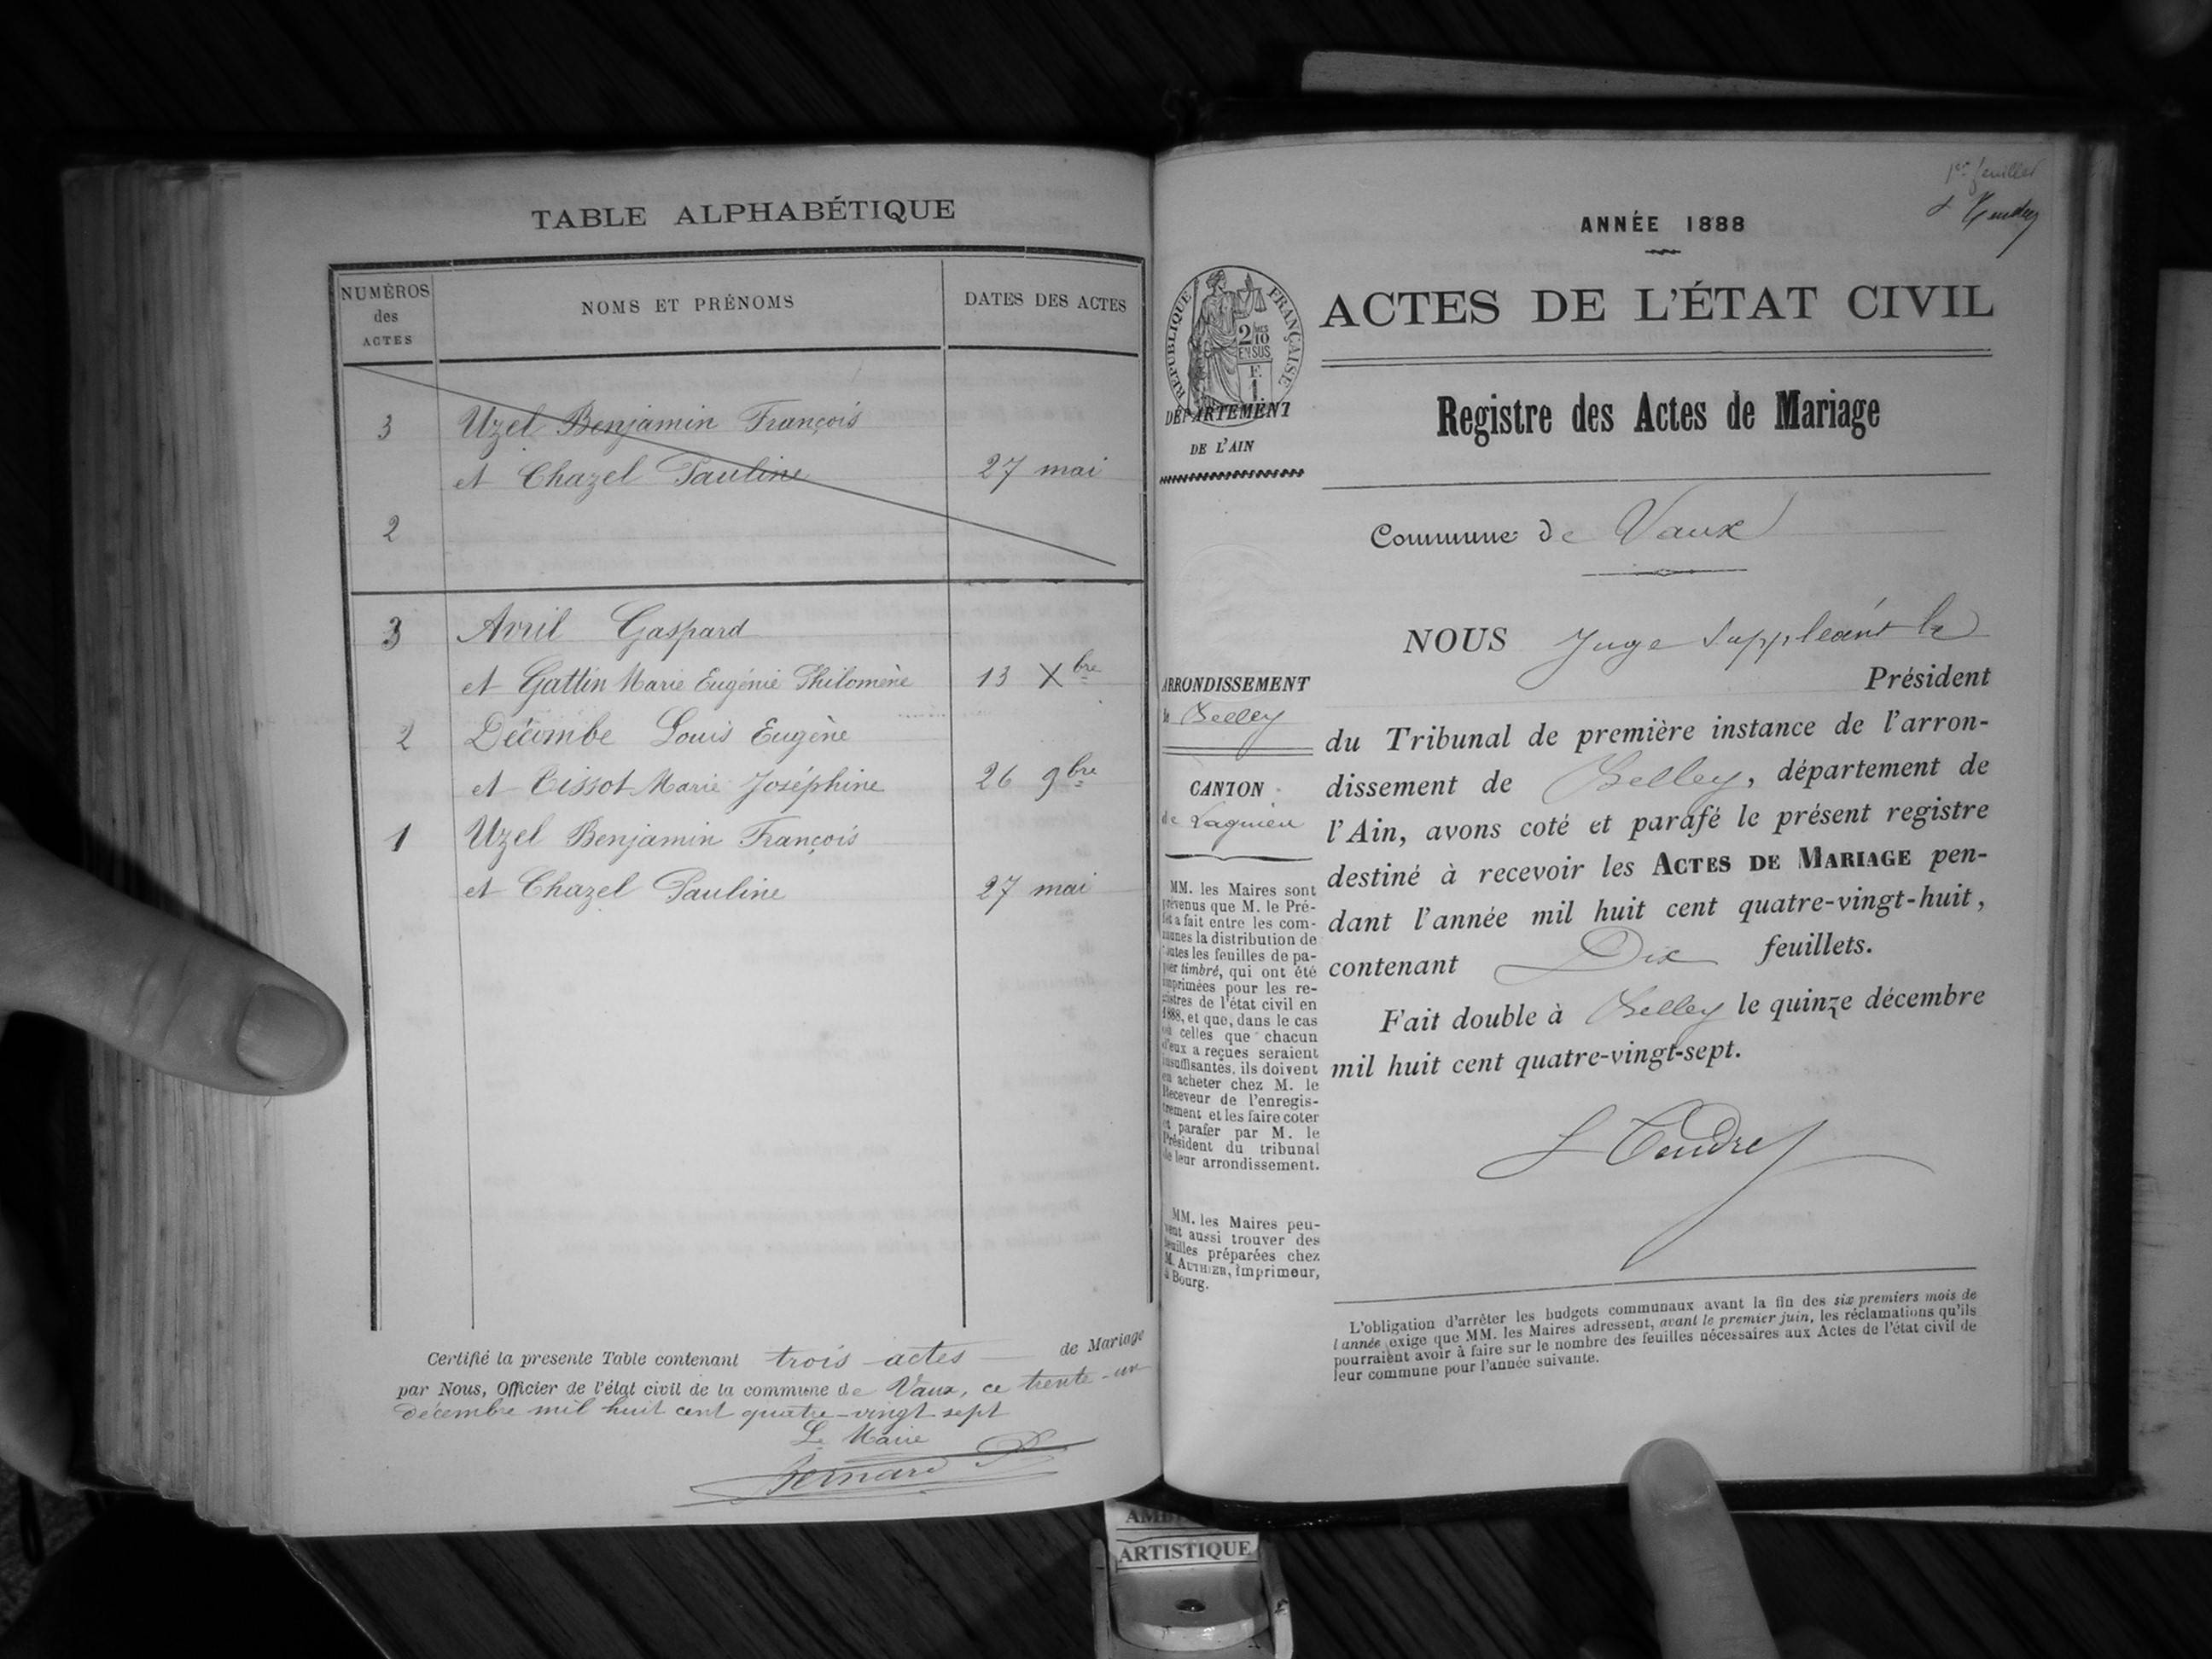 TABLE ALPHABÉTIQUE
NUMÉROS
des
ACTES
NOMS ET PRÉNOMS
DATES DES ACTES
3 Uzel Benjamin François
et Chazel Pauline 27 mai
2
3 Avril Gaspard
et Gattin Marie Eugénie Philomène 13 Xbre
2 Décombe Louis Eugène
et Tissot Marie Joséphine 26 9bre
1 Uzel Benjamin François
et Chazel Pauline 27 mai
Certifié la presente Table contenant trois actes de Mariage
par Nous, Officier de l'état civil de la commune de Vaux, ce trente-un
décembre mil huit cent quatre-vingt-sept
Le Maire
Bernard
1er feuillet
L Tendret
ANNÉE 1888
RÉPUBLIQUE FRANÇAISE
2/10
EN SUS
F.
1
DÉPARTEMENT
DE L'AIN
ARRONDISSEMENT
de Belley
CANTON
de Lagnieu
MM. les Maires sont
prévenus que M. le Pré-
fet a fait entre les com-
munes la distribution de
toutes les feuilles de pa-
pier timbré, qui ont été
imprimées pour les re-
gistres de l'état civil en
1888, et que, dans le cas
où celles que chacun
d'eux a reçues seraient
insuffisantes, ils doivent
en acheter chez M. le
Receveur de l'enregis-
trement et les faire coter
et parafer par M. le
Président du tribunal
de leur arrondissement.
MM. les Maires peu-
vent aussi trouver des
feuilles préparées chez
M. AUTHIER, imprimeur,
à Bourg.
ACTES DE L'ÉTAT CIVIL
Registre des Actes de Mariage
Commune de Vaux
NOUS Juge Suppléant le
Président
du Tribunal de première instance de l'arron-
dissement de Belley, département de
l'Ain, avons coté et parafé le présent registre
destiné à recevoir les ACTES DE MARIAGE pen-
dant l'année mil huit cent quatre-vingt-huit,
contenant Dix feuillets.
Fait double à Belley le quinze décembre
mil huit cent quatre-vingt-sept.
L Tendret
L'obligation d'arrêter les budgets communaux avant la fin des six premiers mois de
l'année exige que MM. les Maires adressent, avant le premier juin, les réclamations qu'ils
pourraient avoir à faire sur le nombre des feuilles nécessaires aux Actes de l'état civil de
leur commune pour l'année suivante.
ARTISTIQUE